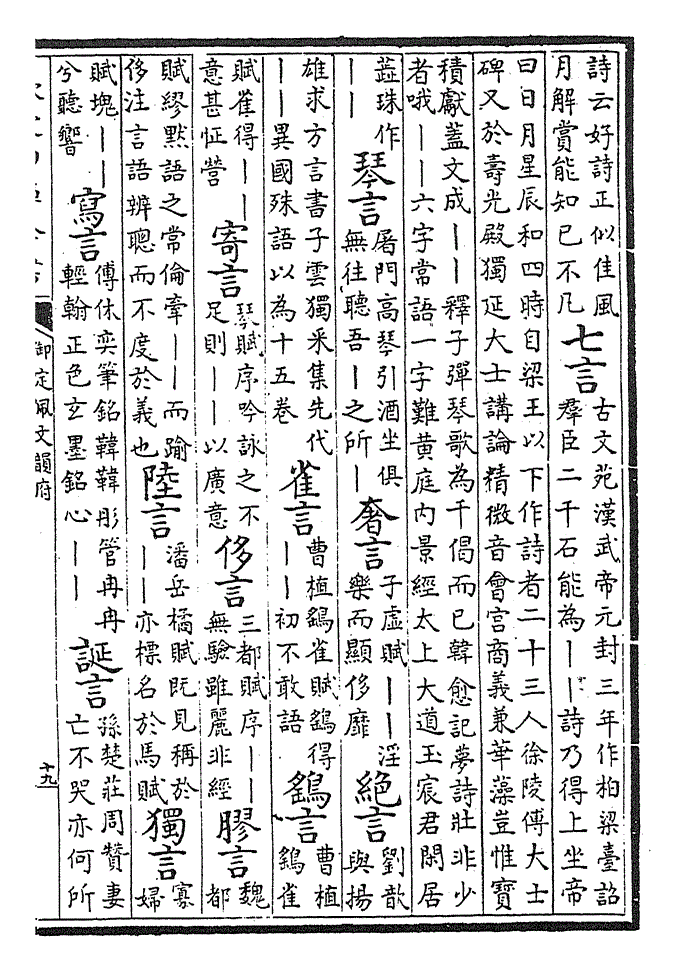 詩云好詩正似佳風
月解賞能知已不凡
七言
古文苑漢武帝元封三年作柏梁臺詔
羣臣二千石能為——詩乃得上坐帝
曰日月星辰和四時自梁王以下作詩者二十三人徐陵傅大士
碑又於壽光殿獨延大士講論精微音會宮商義兼華藻豈惟寶
積獻蓋文成——釋子彈琴歌為千偈而已韓愈記夢詩壯非少
者哦——六字常語一字難黃庭內景經太上大道玉宸君閒居
蕋珠作
——
琴言
屠門高琴引酒坐俱
無往聽吾——之所—
奢言
子虛賦——淫
樂而顯侈靡
絕言
劉歆
與揚
雄求方言書子雲獨采集先代
——異國殊語以為十五卷
雀言
曹植鷂雀賦鷂得
——初不敢語
鷂言
曹植
鷂雀
賦雀得——
意甚怔營
寄言
琴賦序吟詠之不
足則——以廣意
侈言
三都賦序——
無驗雖麗非經
膠言
魏
都
賦繆默語之常倫牽——而踰
侈注言語辨聰而不度於義也
陸言
潘岳橘賦既見稱於
——亦標名於馬賦
獨言
寡
婦
賦塊——
兮聽響
寫言
傅休奕筆銘韡韡彤管冉冉
輕翰正色玄墨銘心——
誕言
孫楚莊周贊妻
亡不哭亦何所
御定佩文韻府
十九